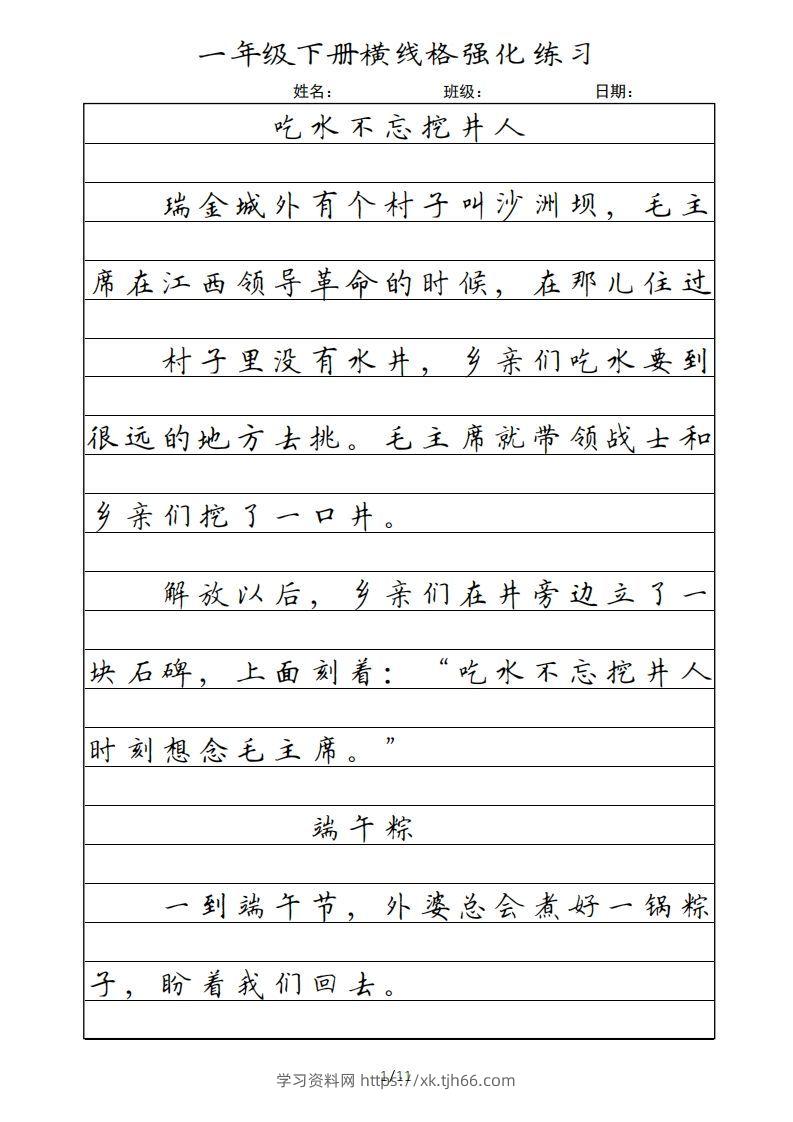 一年级下册横线格强化练习
姓名： 班级： 日期：
吃水不忘挖井人
瑞金城外有个村子叫沙洲坝，毛主
席在江西领导革命的时候，在那儿住过
村子里没有水井，乡亲们吃水要到
很远的地方去挑。毛主席就带领战士和
乡亲们挖了一口井。
解放以后，乡亲们在井旁边立了一
块石碑，上面刻着：“吃水不忘挖井人
时刻想念毛主席。”
端午粽
一到端午节，外婆总会煮好一锅粽
子，盼着我们回去。
1/11
学习资料网 https://xk.tjh66.com